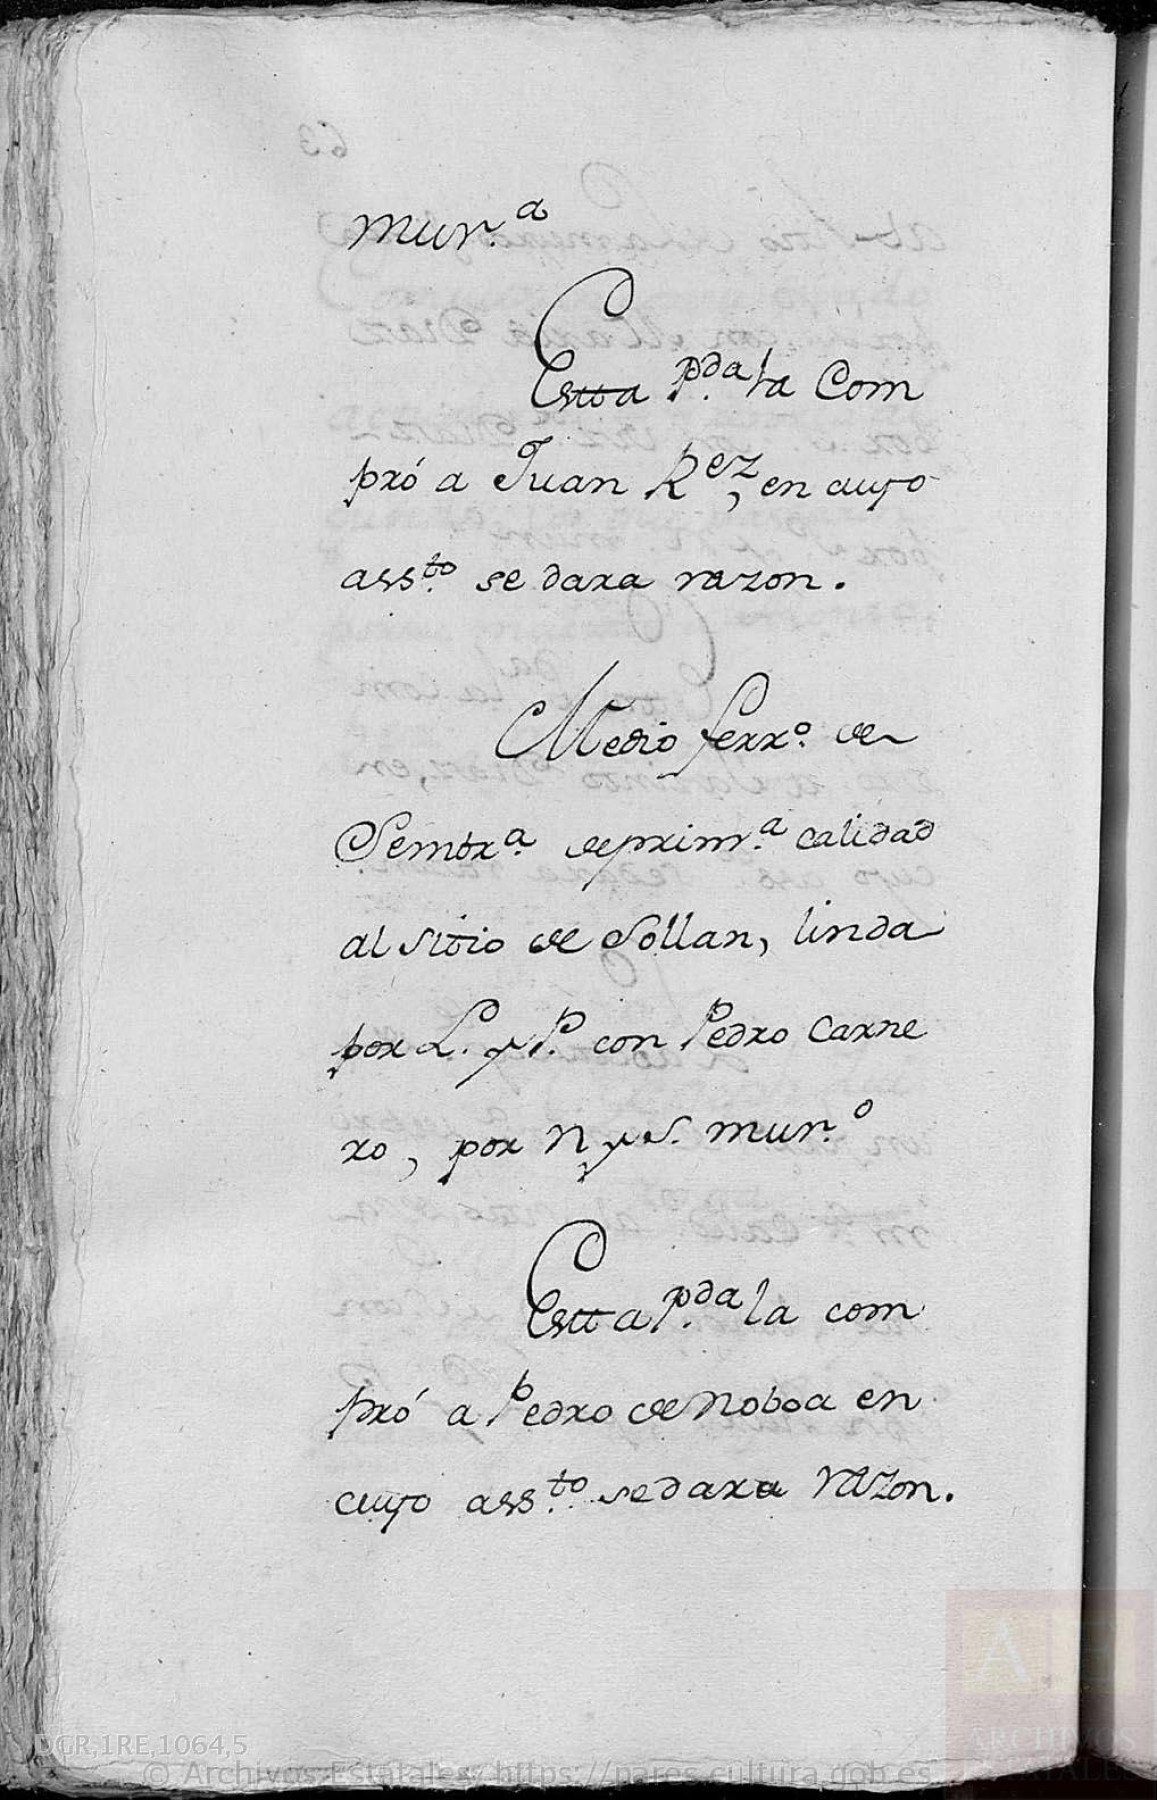 mur.ª
Estta p.da la Com
pró a Juan R.ez, en cuyo
ass.to se dara razon.
Medio ferr.º de
Sembr.ª de prim.ª calidad
al sitio de Sollan, linda
por L. y P. con Pedro Carne
ro, por N y S. mur.º
Estta p.da la com
pró a Pedro de Noboa en
cuyo ass.to se dara razon.
DGR,1RE,1064,5
© Archivos Estatales, https://pares.cultura.gob.es
AE
ARCHIVOS
ESTATALES